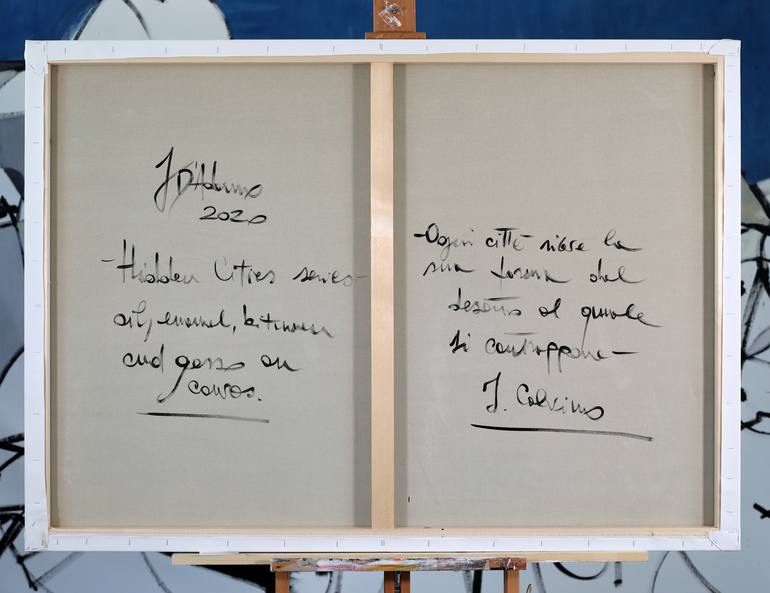 J D'Adamo
2020
-Hidden Cities series-
oil, enamel, bitumen
and gesso on
canvas.
-Ogni città riceve la
sua forma dal
deserto al quale
si contrappone-
I. Calvino